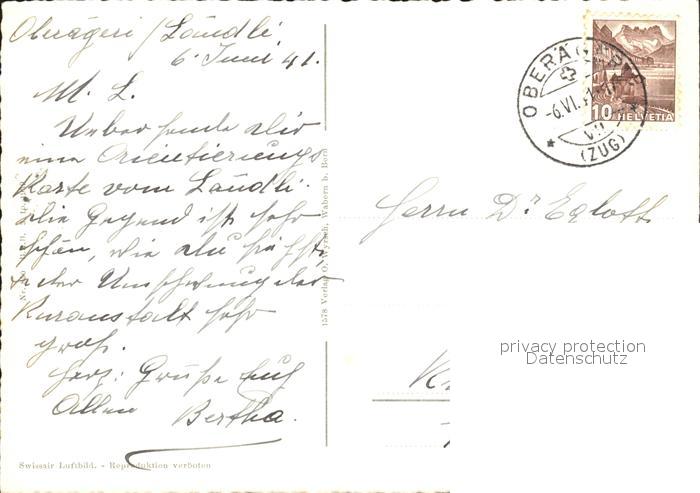 Oberägeri / Ländli
6. Juni 41.
M. L.
Uebersende Dir
eine Orientierungs
Karte vom Ländli.
Die Gegend ist sehr
schön, wie Du siehst,
der Umschwung der
Kuranstalt sehr
groß.
Herz: Grüße Euch
Allen Bertha.
Swissair Luftbild. - Reproduktion verboten
1578 Verlag O. Wyrsch, Wabern b. Bern
OBERÄGERI
-6.VI.
(ZUG)
10 HELVETIA
Herrn Dr. Egloff
privacy protection
Datenschutz